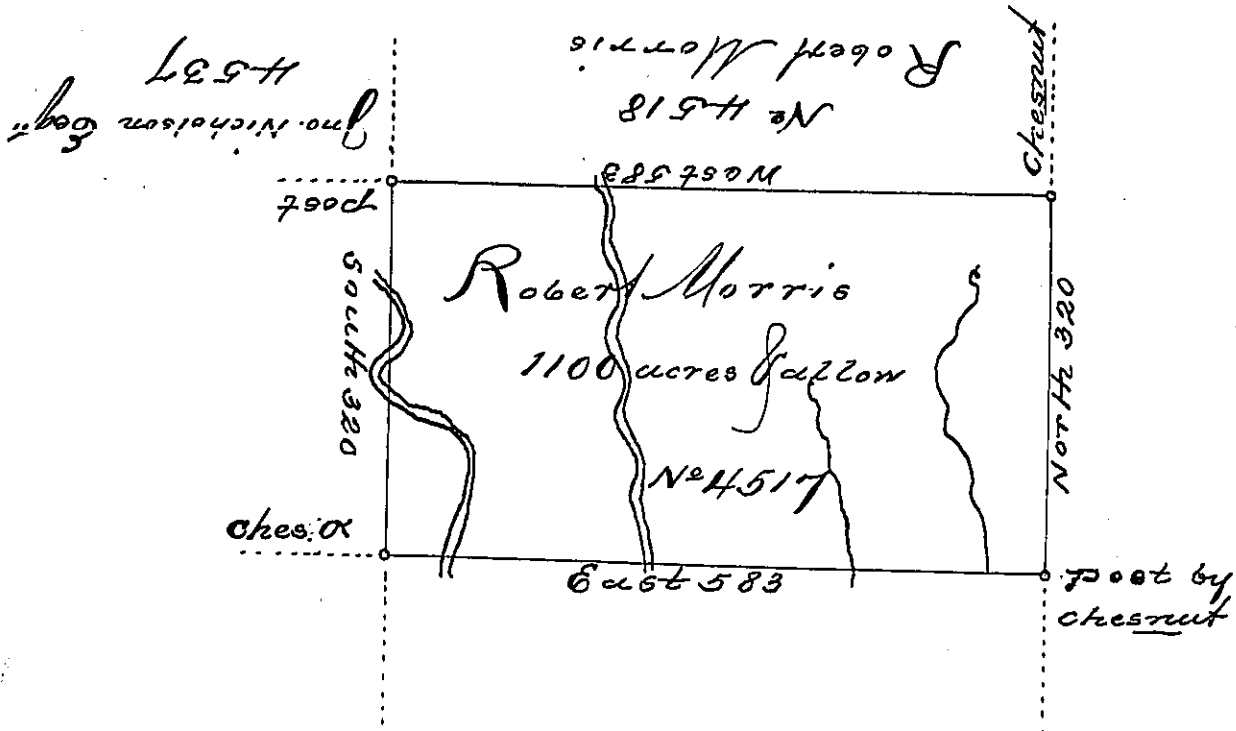 Jno. Nicholson Esqr.
4537
Robert Morris
No 4518
chesnut
West 583
post
South 320
Robert Morris
1100 acres & allow
No 4517
North 320
ches: o
East 583
post by
chesnut